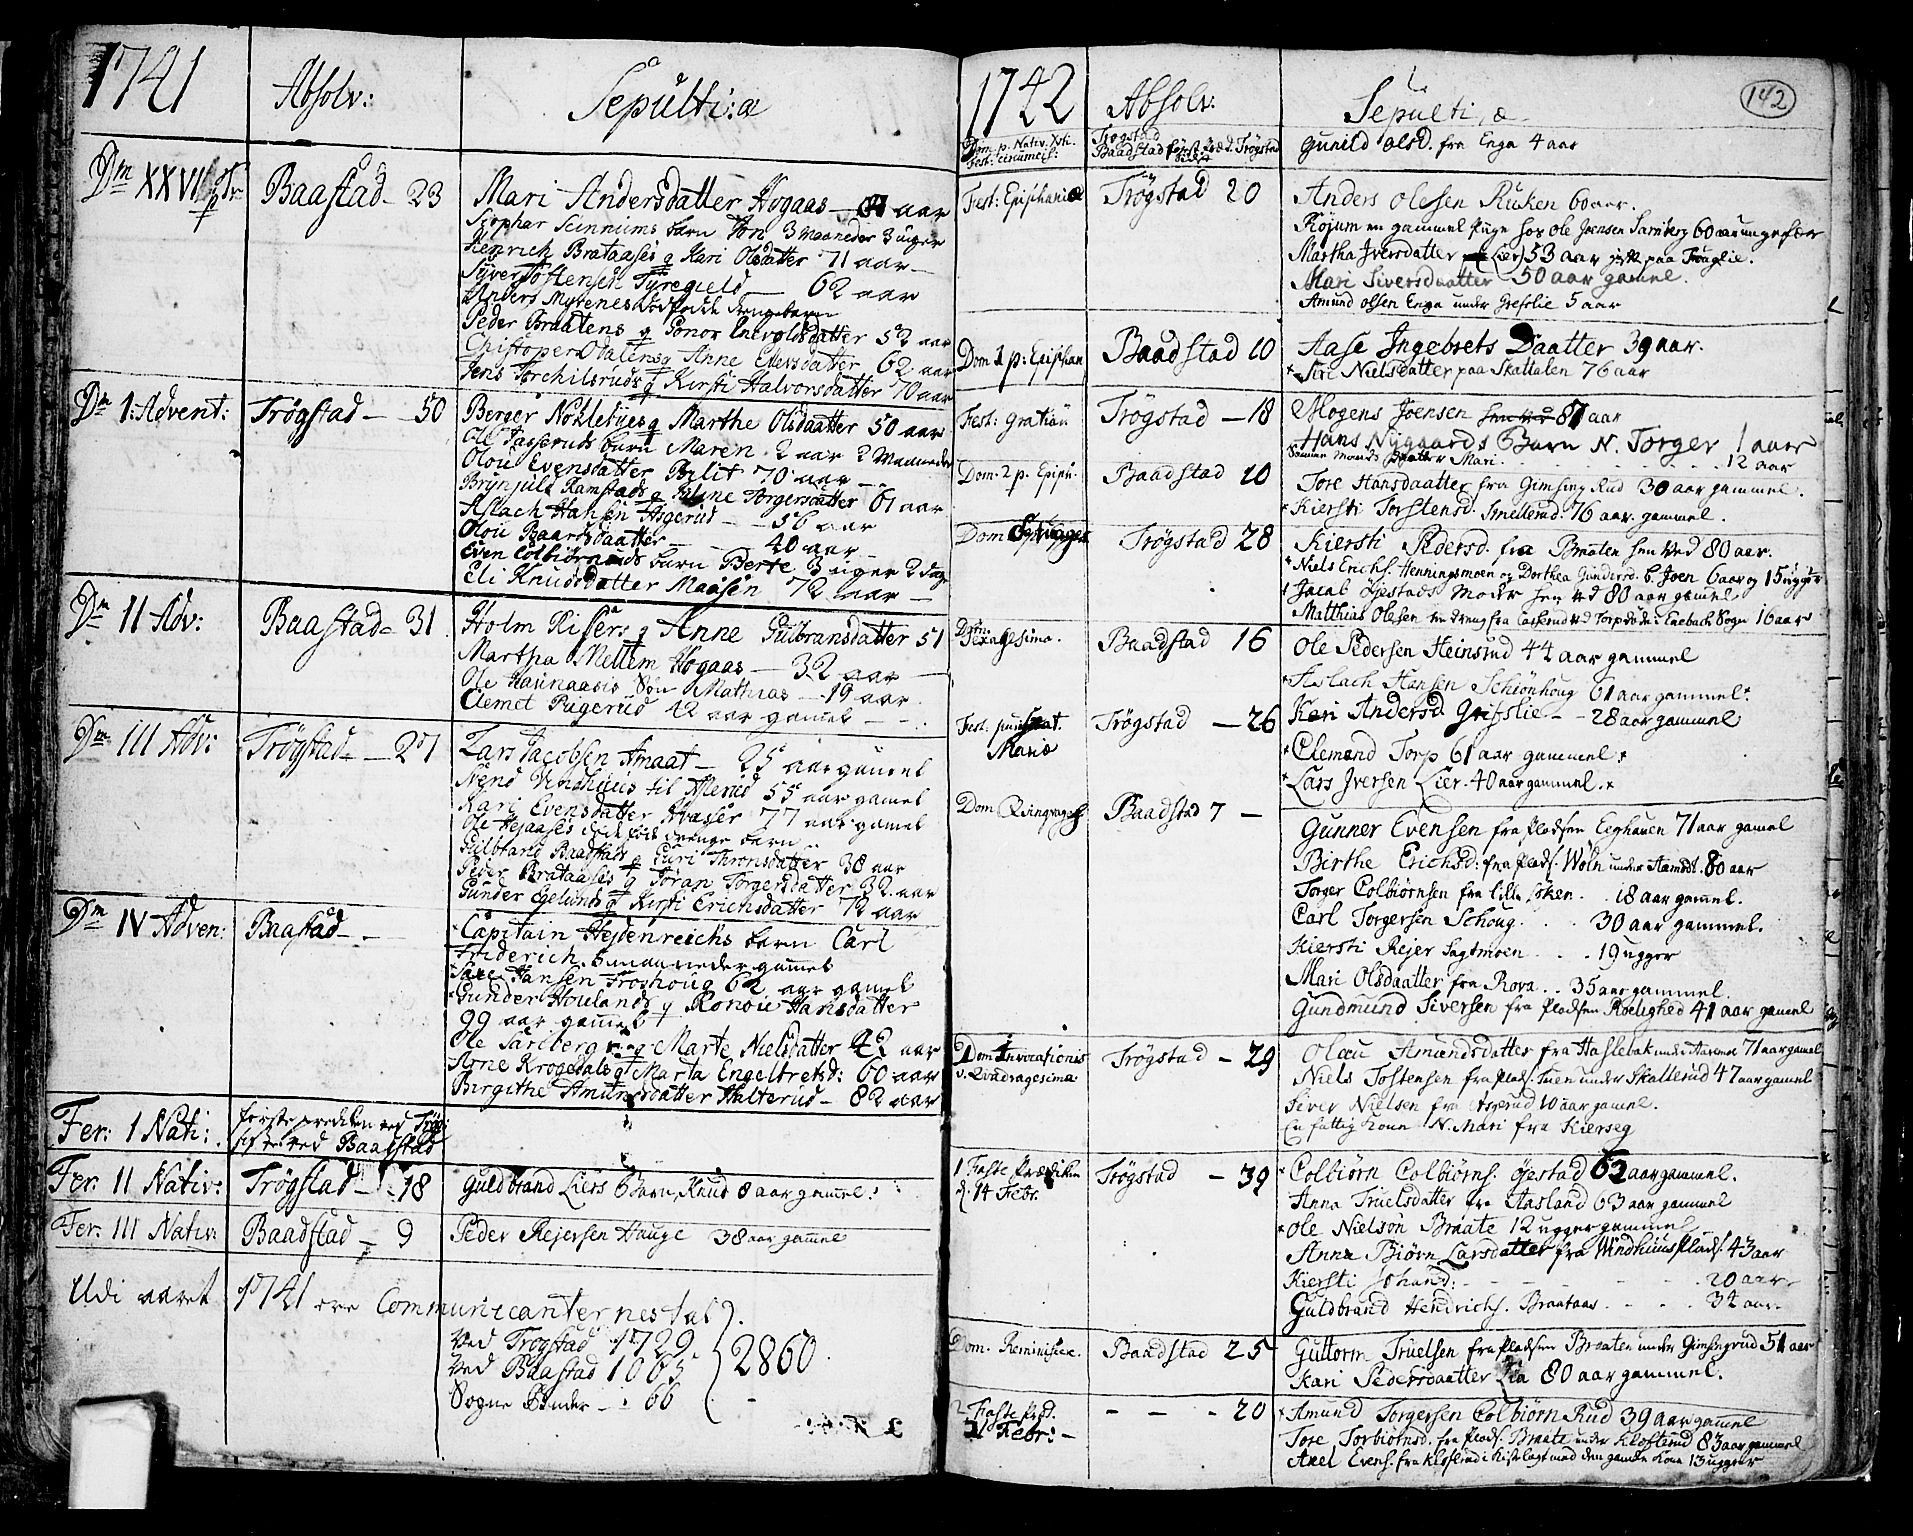 1741 Absolv: Sepulti:æ
Dm XXVI p Tr Baastad - 23 Mari Andersdatter Hogaas - aar
barn Jon 3 Maaneder 3 uger
Henrich Brataases q Kari Olsdatter 71 aar -
Syver Tostensen Tyregield - 62 aar
Anders Myrenes dødfødde drengebarn
Peder Braatens q Gonor Enevoldsdatter 52 aar
Christopher Odalens q Anne Eversdatter 62 aar
Jens Torchilsruds q Kirsti Halvorsdatter 70 aar
Dn 1: Advent: Trøgstad - 50 Berger Nøklebyes q Marthe Olsdaatter 50 aar
Ole barn Maren 2 aar 2 Maaneder
Olou Evensdatter 70 aar - -
Brynjuls Ramstads q Torgersdatter 61 aar
Aslach Hansen Asgerud - - 56 aar
Olou Baardsdaatter - - - 40 aar -
Even Colbiørnruds barn Berte 3 uger 2 dag
Eli Knudsdatter Maasen 72 aar -
Dn II Adv: Baastad - 31 Holm Risers q Anne Gulbransdatter 51
Martha Mellem Hogaas - 32 aar -
Ole Søn Mathias - 19 aar
Clemet Rigerud 42 aar gamel - -
Dm III Adv: Trøgstad - 27 Lars Jacobsen Amaat - 25 aar gamel
Svend Vindhuus til 55 aar gamel
Kari Evensdatter 77 aar gamel
Ole barn
Gulbrand Baastads q Guri Thronsdatter 38 aar
Peder Brataases q Jøran Torgersdatter 32 aar
Gunder Egelunds q Kirsti Erichsdatter 72 aar
Dm IV Adven: Baastad - - Capitain Hejdenreichs barn Carl
Friderich. maaneder gamel
Hansen Froshoug 62 aar gamel
Gunder Houlands q Ronou Hansdatter
99 aar gamel
Ole Sarberg q Marte Nielsdatter 42 aar
Arne Krogedals q Marta Engelbretsd: 60 aar
Birgithe Amundsdatter Halterud - 82 aar
Fer: I Nati: første prediken ved Trøg:
ved Baastad
Fer: II Nativ: Trøgstad - 18 Guldbrand Liers Barn, Knud 8 aar gamel.
Fer: III Nativ: Baadstad - 9 Peder Rejersen Hauge 38 aar gamel
Udi aaret 1741 ere Communicanternes tal
Ved Trøgstad 1729
Ved Baastad 1065 2860
Sogne Bønder - : 66
1742 Absolv: Sepulti, æ 142
Dom. p. Nativ. Xsti. Trøgstad Gunild Olsd. fra Enga 4 aar
Fest: circumcis: Baadstad Trøgstad
Fest: Epiphaniæ Trøgstad 20 Anders Olesen Ruken 60 aar.
Røjum en gammel Pige hos Ole Joensen Sarberg 60 aar ungefær
Martha Iversdatter Lier 53 aar
Mari Siversdaatter 50 aar gamel.
Amund Olsen Enga under Grefslie 5 aar
Dom 1 p: Epiphan Baadstad 10 Aase Ingebrets Daatter 39 aar.
* Siri Nielsdatter paa Skattalen 76 aar
Fest: Gratiar Trøgstad - 18 Mogens Joensen 87 aar
Hans Nygaards Barn N. Torger 1 aar
Samme Mands Daatter Mari . . . . 12 aar
Dom. 2 p. Epiph. Baadstad 10 Tore Hansdaatter fra Gimsing Rud 30 aar gammel.
* Kiersti Torstensd. Smellerud. 76 aar. gammel.
Dom Septuages Trøgstad 28 Kiersti Pedersd. fra Braaten hen ved 80 aar.
* Niels Erichs. Henningsmoen og Dorthea Gundersd. b. Joen 6 aar og 15 ugger
Jacob Øjestads Moder hen ved 80 aar gamel
Matthias Olesen en dreng fra ved i Enebach Sogn 16 aar
Dom: Sexagesima. Baadstad 16 Ole Pedersen Heinsrud 44 aar gammel
* Aslach Hansen Schiønhoug 61 aar gammel *
Fest. purificat. Mariæ Trøgstad - 26 Kari Andersd. Grifslie - - 28 aar gammel
* Clemend Torp 61 aar gammel *
* Lars Iversen Lier. 40 aar gammel. *
Dom Qvinqvages Baadstad 7 - Gunner Evensen fra Pladsen Eeghauen 71 aar gamel
Birthe Erichsd: fra Plads. under Aamodt. 80 aar
Torger Colbiørnsen fra lille . . 18 aar gammel.
Carl Torgersen Schoug. . . . 30 aar gammel.
Kiersti Rejer Sagtmoen . . . . 19 ugger
Mari Olsdaatter fra Rova . . 35 aar gammel.
Gundmund Siversen fra Pladsen Roelighed 41 aar gamel
Dom Invocationis Trøgstad - 29 Olou Amundsdatter fra Haslebak under 71 aar gamel
v. Qvadragesima Niels Tostensen fra Plads. Tuen under Skallerud 47 aar gamel
Siver Nielsen fra Asgerud 10 aar gamel.
En fattig kone N. Mari fra Kierseg
1 Faste Prædiken Trøgstad - 39 * Colbiørn Colbiørns. Øjestad 62 aar gammel.
d. 14 Febr. Anna Truelsdatter fra Aasland 63 aar gammel
* Ole Nielson Braate 12 ugger gammel
Anna Biørn Larsdatter fra Windhuus Plads. 43 aar
Kiersti Johand: - - - - 20 aar
Guldbrand Hendrichs. Braataas - - - 34 aar.
Dom. Reminiscere. Baadstad 25 Guttorm Truelsen fra Pladsen Braaten under Gimsingrud 51 aar
Kari Pedersdaatter Lia 80 aar gammel.
2 Faste Præd. - - - 20 * Amund Torgersen Colbiørn Rud 39 aar gamel
21 Febr: - Tore Torbiørnsd. fra Plads. Braate under Klosterud 83 aar gammel
Axel Evens. fra Klosterud i Kiste lagt med den gamle Kone 13 ugger